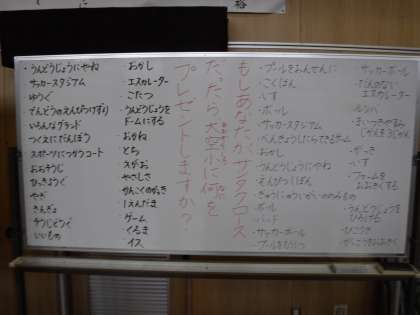 もしあなたがサンタクロース
だったら大宮小に何を
プレゼントしますか?
・うんどうじょうにやね
サッカースタジアム
ゆうぐ
でんどうのえんぴつけずり
いろんなグランド
つくえにだんぼう
スポーツにつかうコート
おおそうじ
ひっきようぐ
やぎ
さんぎょ
そうじどうぐ
いいもの
おかし
エスカレーター
こたつ
うんどうじょうを
ドームにする
おかね
とち
えがお
やさしさ
がんこくのがっき
1えんだま
ゲーム
くるま
イス
・プールをおんせんに
・こくばん
・いす
・ボール
・サッカースタジアム
・おかし
・うんどうじょうにやね
・えんぴつしばい
ボール
・バット
・サッカーボール
・サッカーボール
・だんのない
エスカレーター
・ルンバ
・まいつきやすみ
じかんを3じかん
・がっき
・いす
・うんどうじょうを
ひろげる
・ひこうき